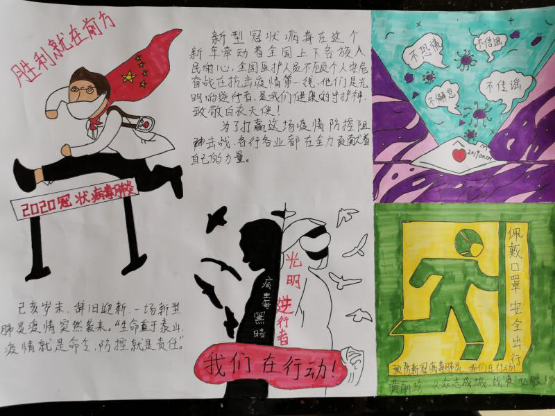 胜利就在前方
新型冠状病毒在这个
新年牵动着全国上下各族人
民的心，全国医护人员不顾个人安危
奋战在抗击疫情第一线，他们是光
明的逆行者，是我们健康的守护神，
致敬白衣天使！
为了打赢这场疫情防控阻
击战，各行各业都在全力贡献着
自己的力量。
不恐慌
不信谣
不传谣
2020冠状病毒肺炎
己亥岁末，辞旧迎新，一场新型
肺炎疫情突然袭来。“生命重于泰山，
疫情就是命令，防控就是责任”。
病毒黑暗
光明逆行者
我们在行动！
佩戴口罩 安全出行